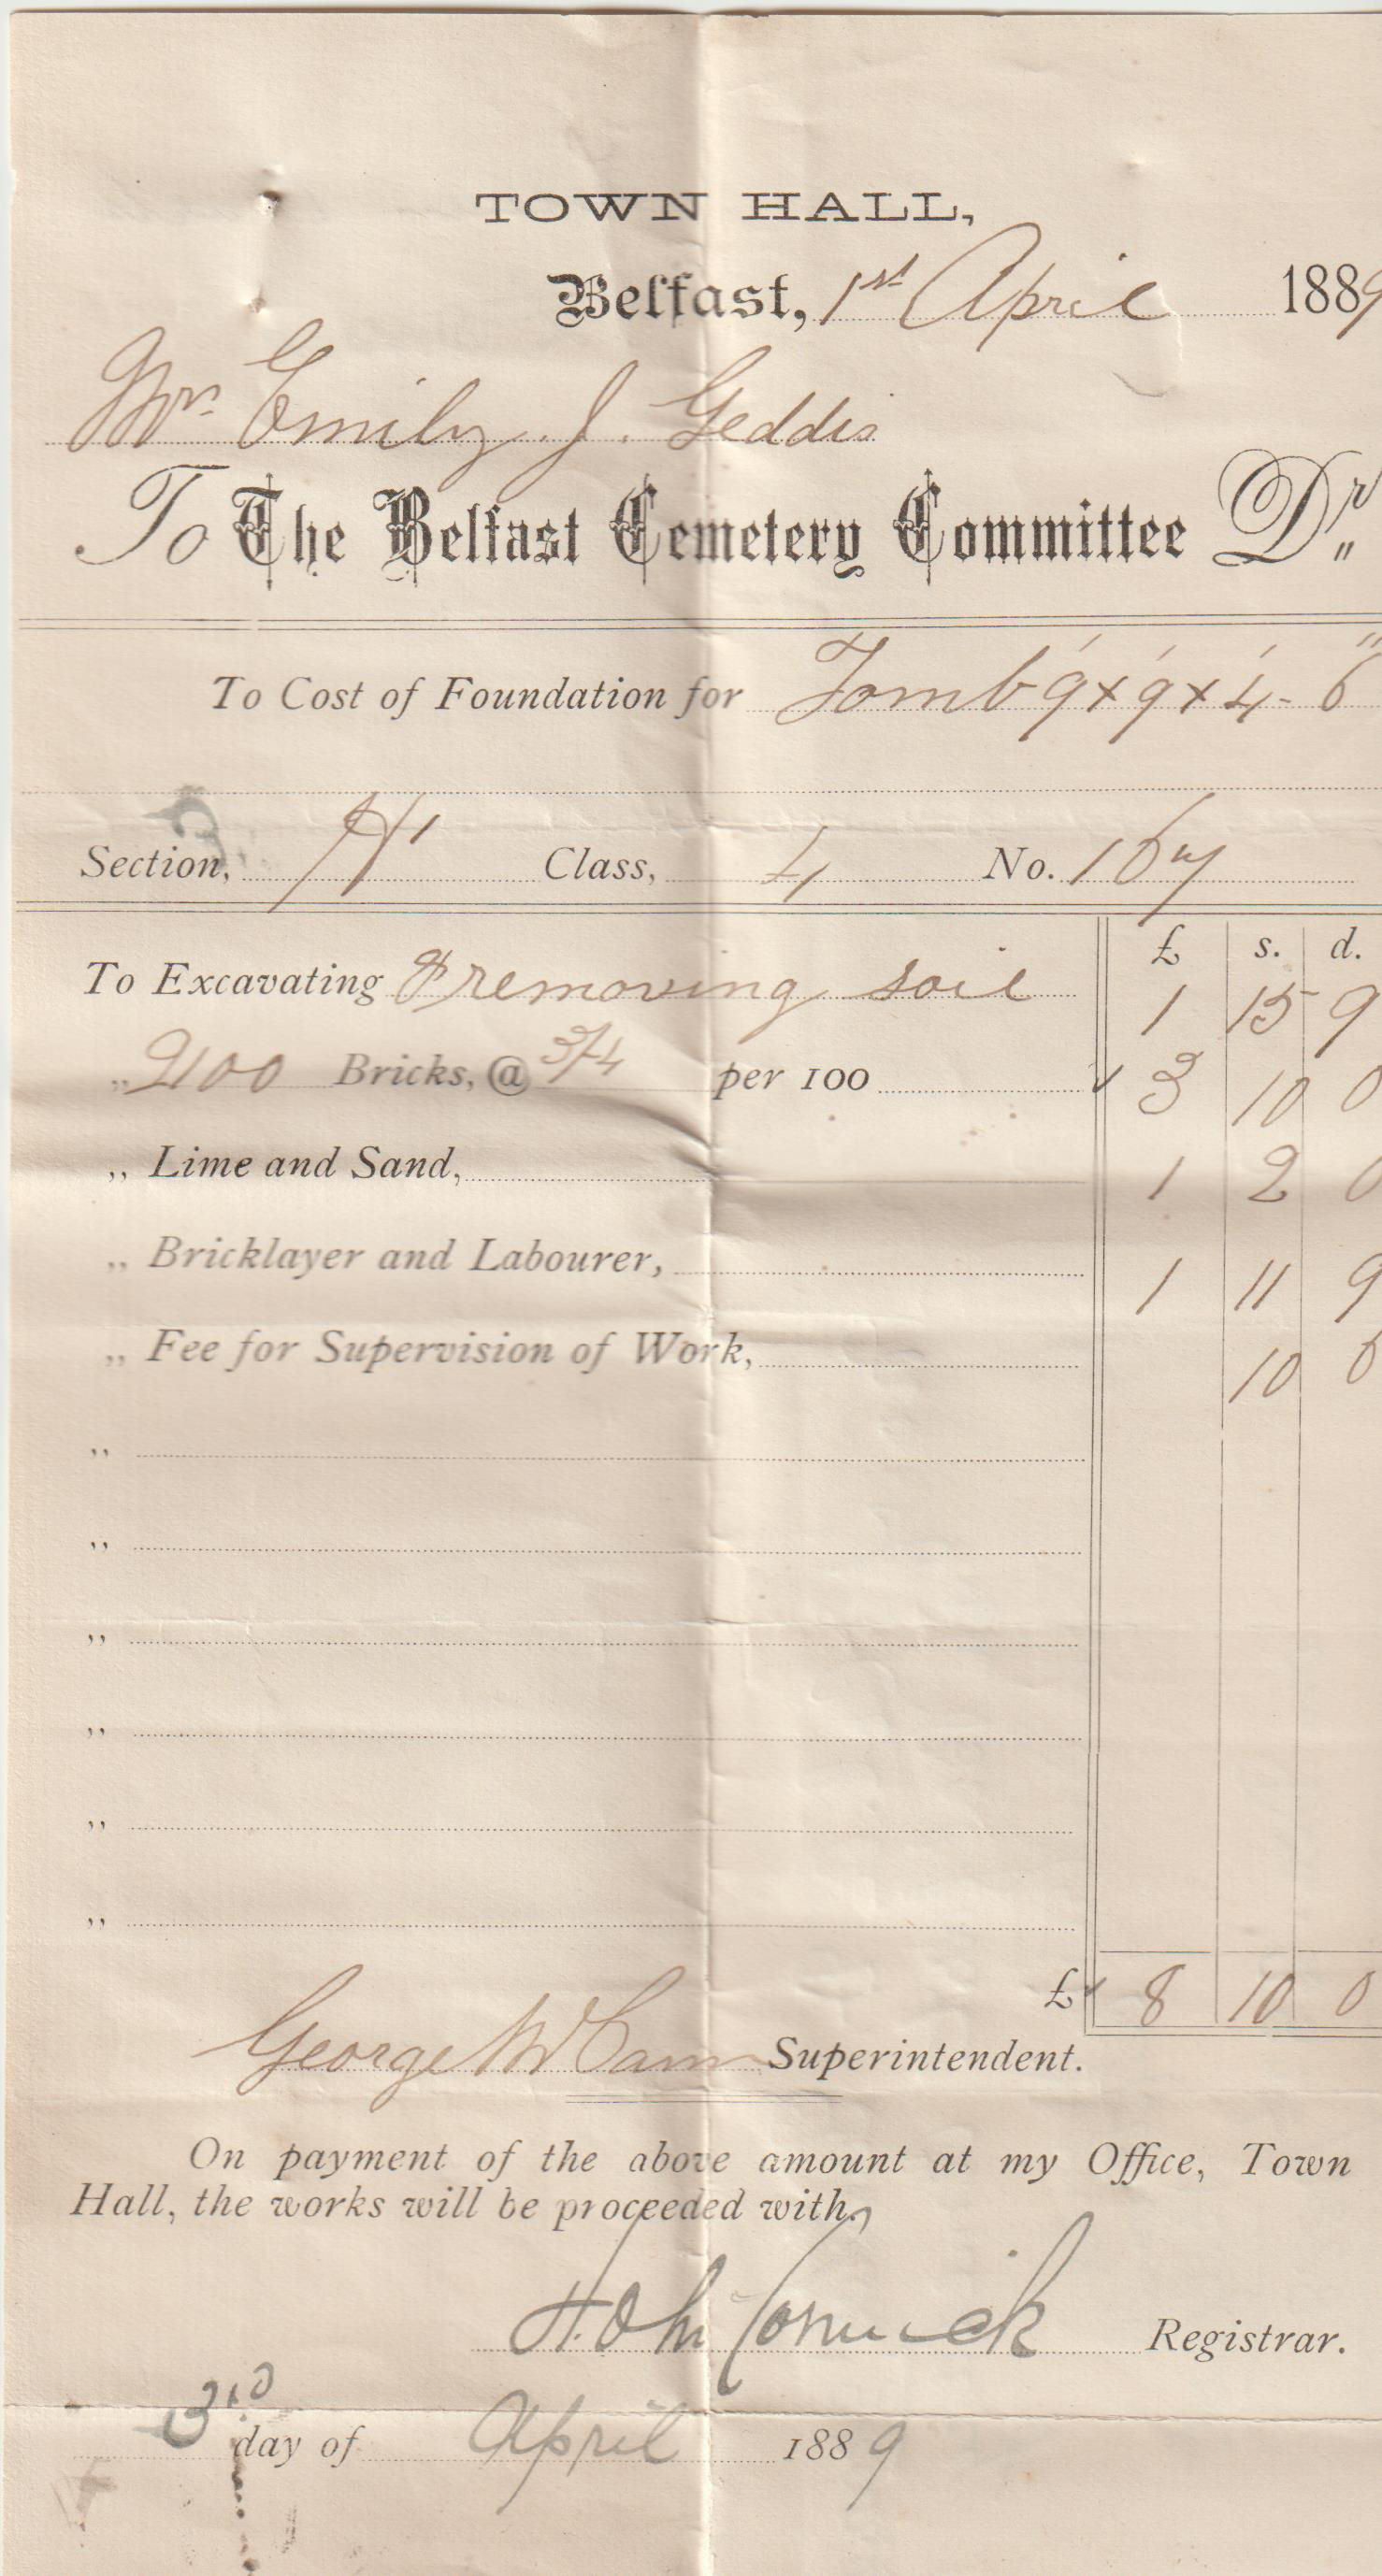 TOWN HALL,
Belfast, 1st April 1889
Mrs Emily J. Geddis
To The Belfast Cemetery Committee Dr,,
To Cost of Foundation for Tomb 9' x 9' x 4'-6"
Section, H' Class, 4 No.
£ s. d.
To Excavating & removing soil 1 15 9
„ 2100 Bricks, @ 3/4 per 100 3 10 0
„ Lime and Sand, 1 2 0
„ Bricklayer and Labourer, 1 11 9
„ Fee for Supervision of Work, 10 6
„
„
„
„
„
„
£ 8 10 0
George McCann Superintendent.
On payment of the above amount at my Office, Town
Hall, the works will be proceeded with.
McCormick Registrar.
3rd day of April 1889